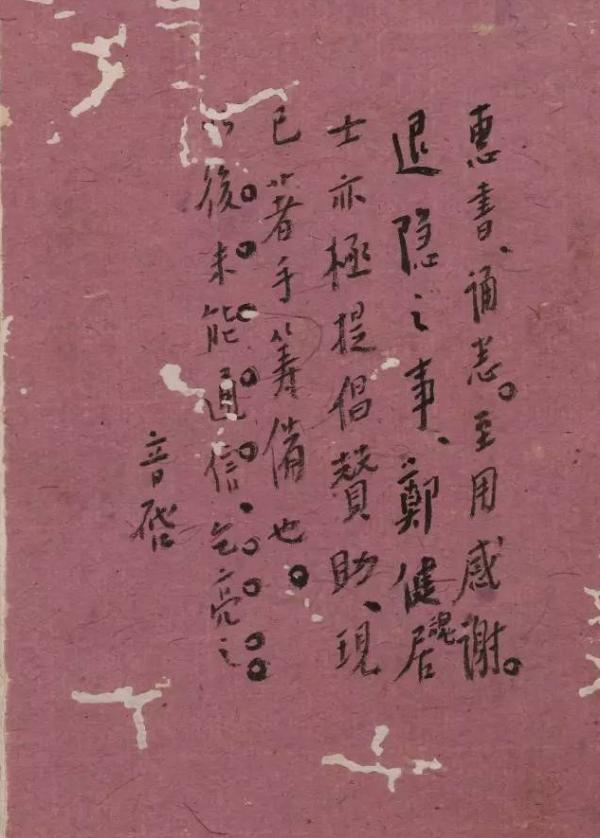 惠書、誦悉。至用感謝。
退隐之事、鄭健魂居
士亦極提倡贊助、現
已着手籌備也。
以後未能通信、乞亮之。
音啓